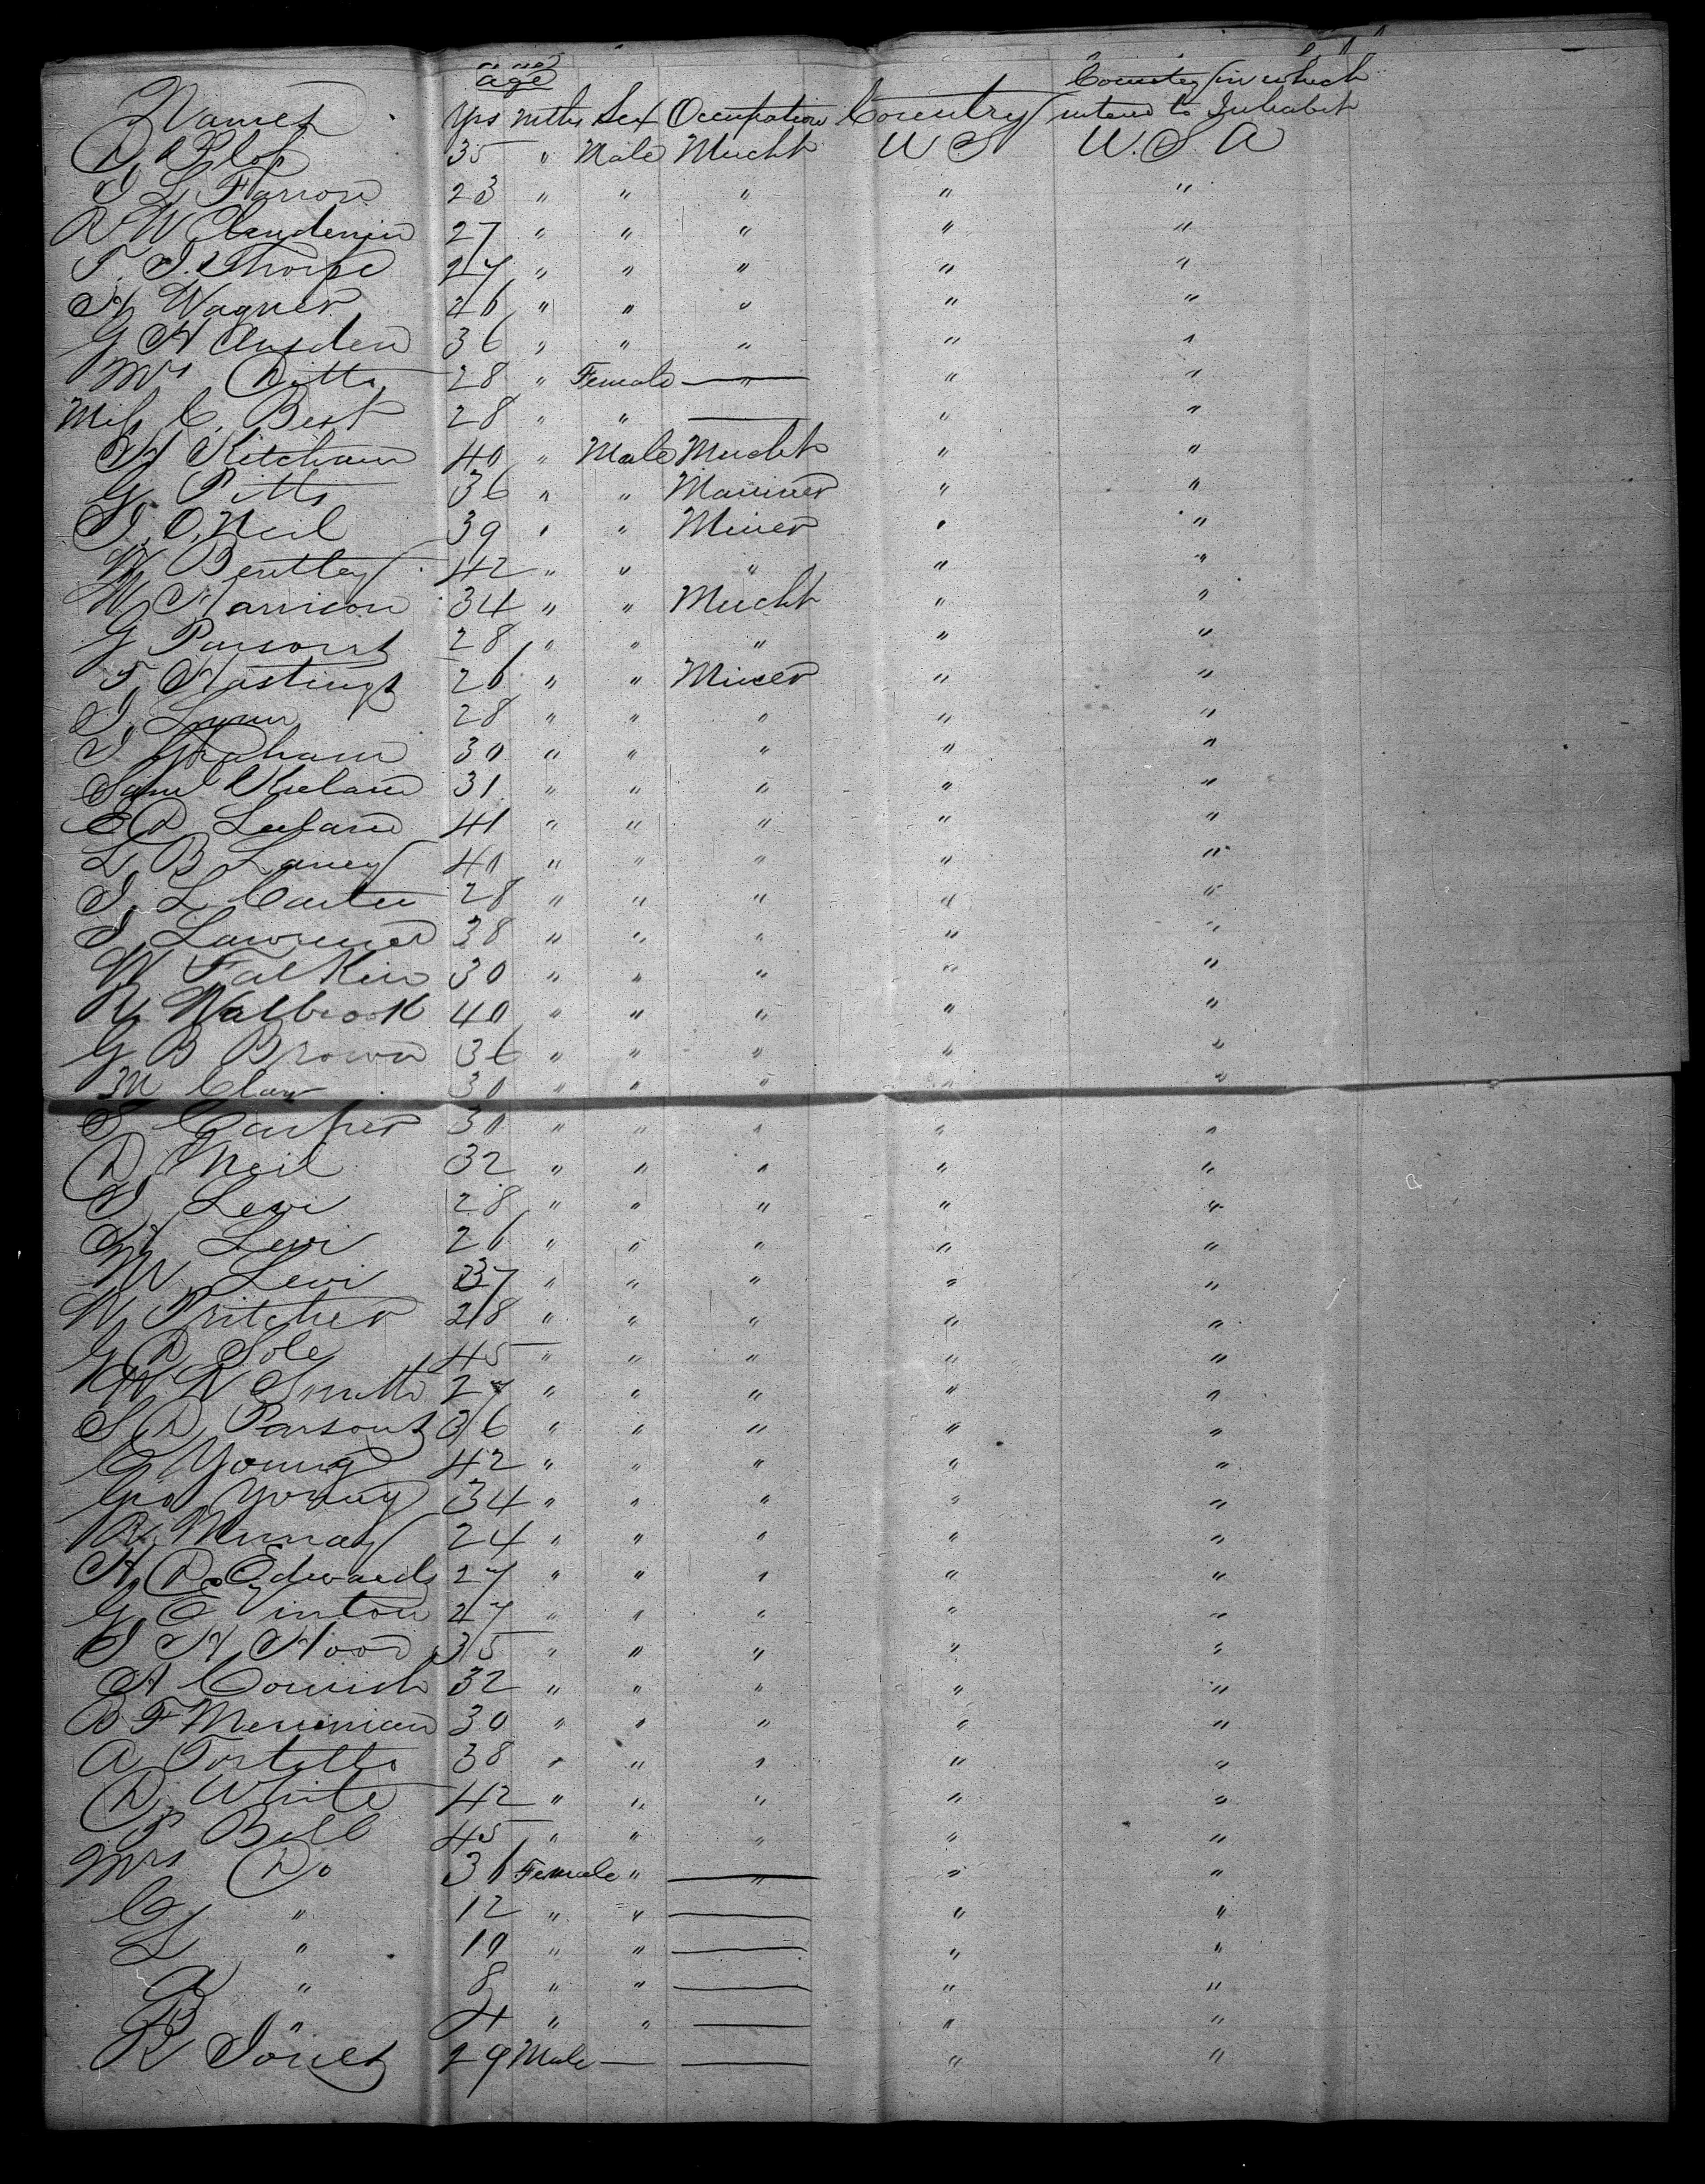 Names age Yrs Mths Sex Occupation Country Country in which intend to Inhabit
35 " Male Mercht U S U. S. A
23 " " " " "
R W Clendenin 27 " " " " "
T. J. Thorpe 27 " " " " "
H Wagner 26 " " " " "
G H 36 " " " " "
Mrs Ditto 28 " Female — " " "
Miss C. Best 28 " " — " "
H Ketcham 40 " Male Mercht " "
G Pitts 36 " " Mariner " "
J. O. Neil 39 " " Miner " "
W Bentley 42 " " " " "
W Harrison 34 " " Mercht " "
G Parsons 28 " " " " "
T, Hastings 26 " " Miner " "
J, Lynn 28 " " " " "
J Graham 30 " " " " "
Saml 31 " " " " "
E D 41 " " " " "
L, B Laney 40 " " " " "
J. L Carter 28 " " " " "
J, Lawrence 38 " " " " "
W Falkin 30 " " " " "
R. Walbrook 40 " " " " "
G B Brown 36 " " " " "
M Clay 30 " " " " "
30 " " " " "
D, Neil 32 " " " " "
J Levi 28 " " " " "
H Levi 26 " " " " "
M Levi 37 " " " " "
W Pritcher 28 " " " " "
G D Sole 45 " " " " "
W W Smith 27 " " " " "
S D Parsons 36 " " " " "
C Young 42 " " " " "
Geo Young 34 " " " " "
R. Murray 24 " " " " "
H D Edwards 27 " " " " "
G E Vinton 27 " " " " "
J H Hood 35 " " " " "
A Cornish 32 " " " " "
B F Merriman 30 " " " " "
A Tortello 38 " " " " "
D. White 42 " " " " "
P Bell 45 " " " " "
Mrs Do 36 Female " — " " "
C " 12 " " — " "
L " 10 " " — " "
A " 8 " " — " "
B " 4 " " — " "
R Jones 29 Male — — " "